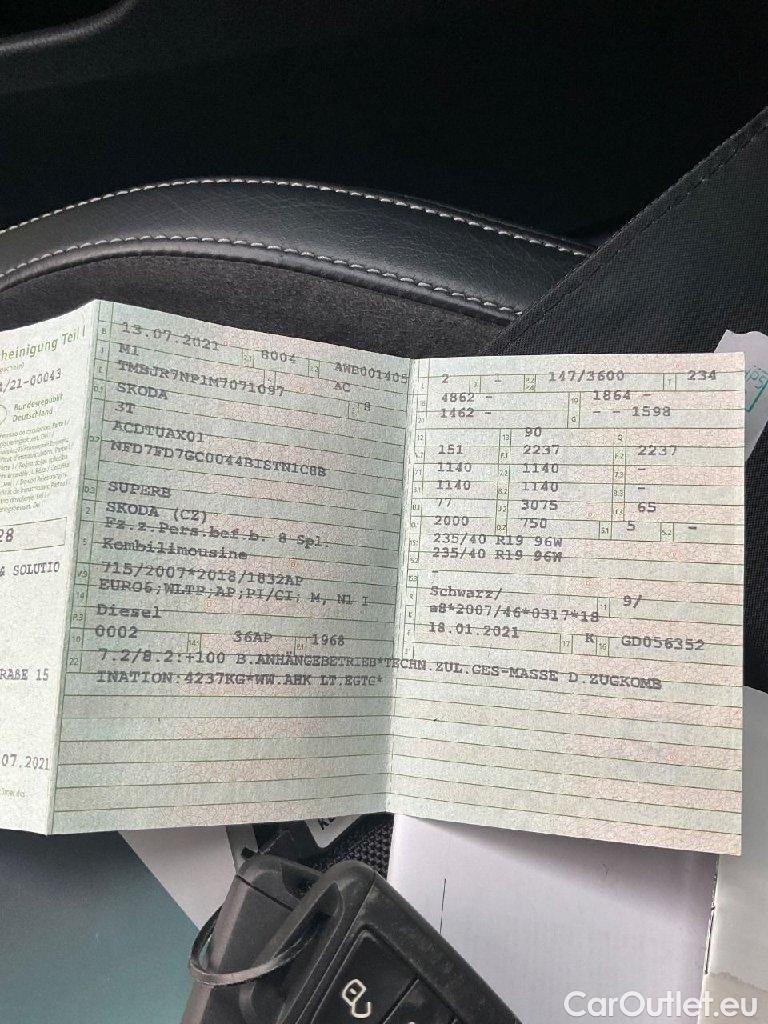 heinigung Teil I
/21-00043
Bundesrepublik
Deutschland
28
& SOLUTIO
RAßE 15
.07.2021
B 13.07.2021 8004 AWE001405
J M1 AC
E TMBJR7NP1M7071097 8
D.1 SKODA
3T
D.2 ACDTUAX01
NFD7FD7GC0044BISTN1C8B
D.3 SUPERB
2 SKODA (CZ)
5 Fz.z.Pers.bef.b. 8 Spl.
Kombilimousine
V.9 715/2007*2018/1832AP
14 EURO6;WLTP;AP;PI/CI; M, N1 I
P.3 Diesel
10 0002 14.1 36AP P.1 1968
22 7.2/8.2:+100 B.ANHÄNGEBETRIEB*TECHN.ZUL.GES-MASSE D.ZUGKOMB
INATION:4237KG*WW.AHK LT.EGTG*
2 - 147/3600 T 234
18 4862 - 19 1864 -
20 1462 - - - 1598
12 - 13 90 Q -
151 F.1 2237 F.2 2237
1140 7.2 1140 -
1140 8.2 1140 -
77 U.2 3075 U.3 65
O.1 2000 O.2 750 S.1 5 S.2 -
15.1 235/40 R19 96W
15.2 235/40 R19 96W
15.3 -
R Schwarz/ 11 9/
K e8*2007/46*0317*18
6 18.01.2021 17 K 16 GD056352
CarOutlet.eu